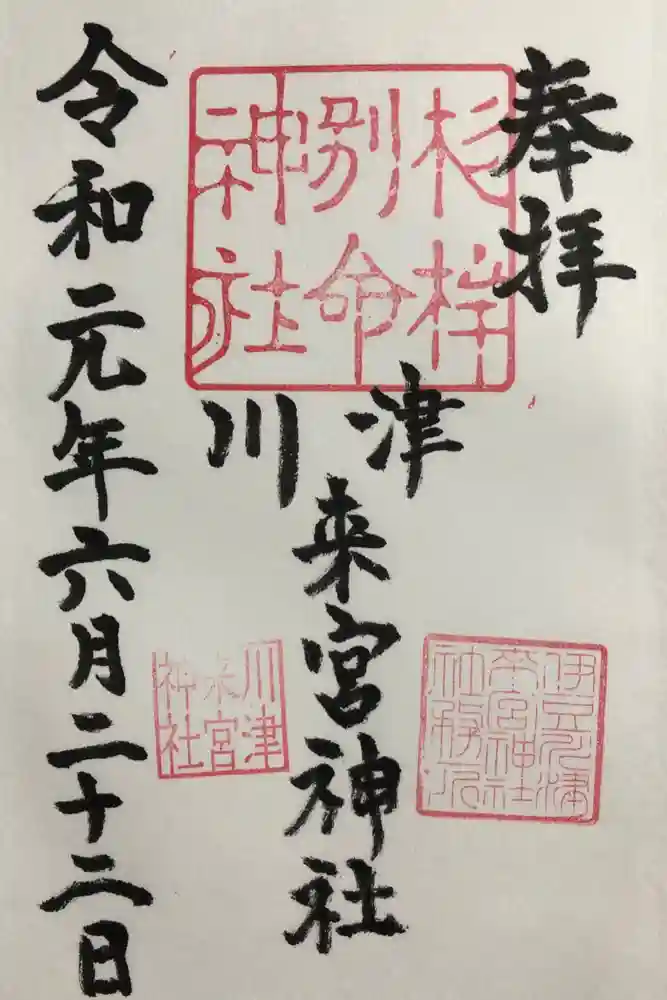 奉拝
杉桙
別命
神社
川津
来宮神社
伊豆川津
来宮神社
社務所
川津
来宮
神社
令和元年六月二十二日